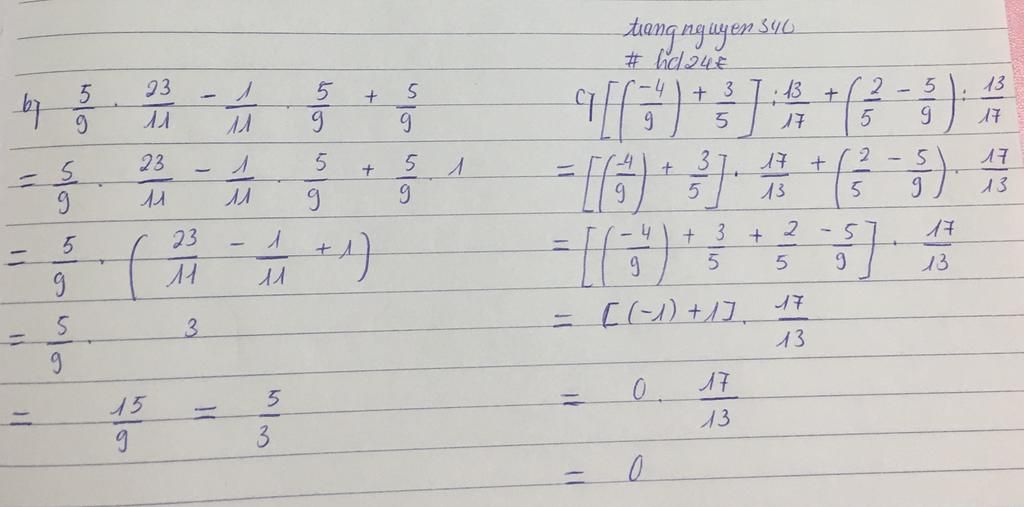 trangnguyen346
# hd247
b) 5/9 . 23/11 - 1/11 . 5/9 + 5/9
= 5/9 . 23/11 - 1/11 . 5/9 + 5/9 . 1
= 5/9 . ( 23/11 - 1/11 + 1 )
= 5/9 . 3
= 15/9 = 5/3
c) [(-4/9) + 3/5] : 13/17 + (2/5 - 5/9) : 13/17
= [(-4/9) + 3/5] . 17/13 + (2/5 - 5/9) . 17/13
= [(-4/9) + 3/5 + 2/5 - 5/9] . 17/13
= [(-1) + 1] . 17/13
= 0 . 17/13
= 0